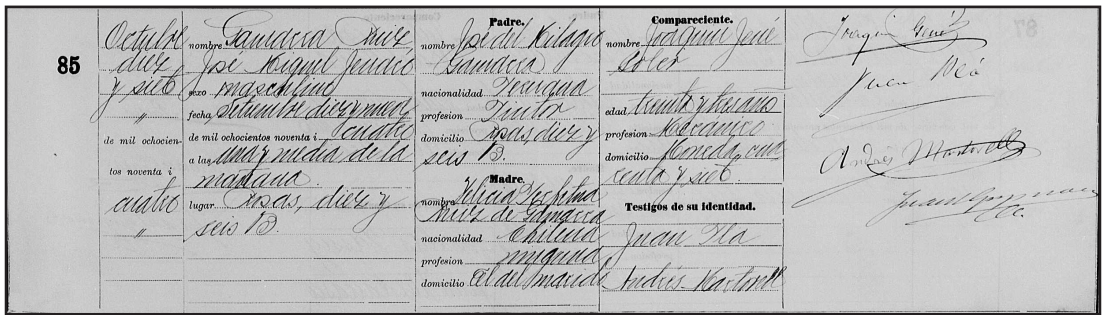 85
Octubre
diez
y siete
"
de mil ochocien-
tos noventa i
cuatro
"
nombre Gamarra Ruiz
José Miguel Jenaro
sexo masculino
fecha, setiembre diez y nueve
de mil ochocientos noventa i cuatro
a las una y media de la
mañana.
lugar. Rosas, diez y
seis B.
Padre.
nombre José del Milagro
Gamarra
nacionalidad Peruana
profesion Pintor
domicilio Rosas, diez y
seis B.
Madre.
nombre
Ruiz de Gamarra
nacionalidad Chilena
profesion ninguna
domicilio El del marido
Compareciente.
nombre Joaquin Jené
Soler
edad treinta y tres años
profesion Mecánico
domicilio Moneda, cua
renta y siete
Testigos de su identidad.
Juan Pla
Andrés Martorell
Joaquin Giné
Juan Plá
Andrés Martorell
Juan Guzman